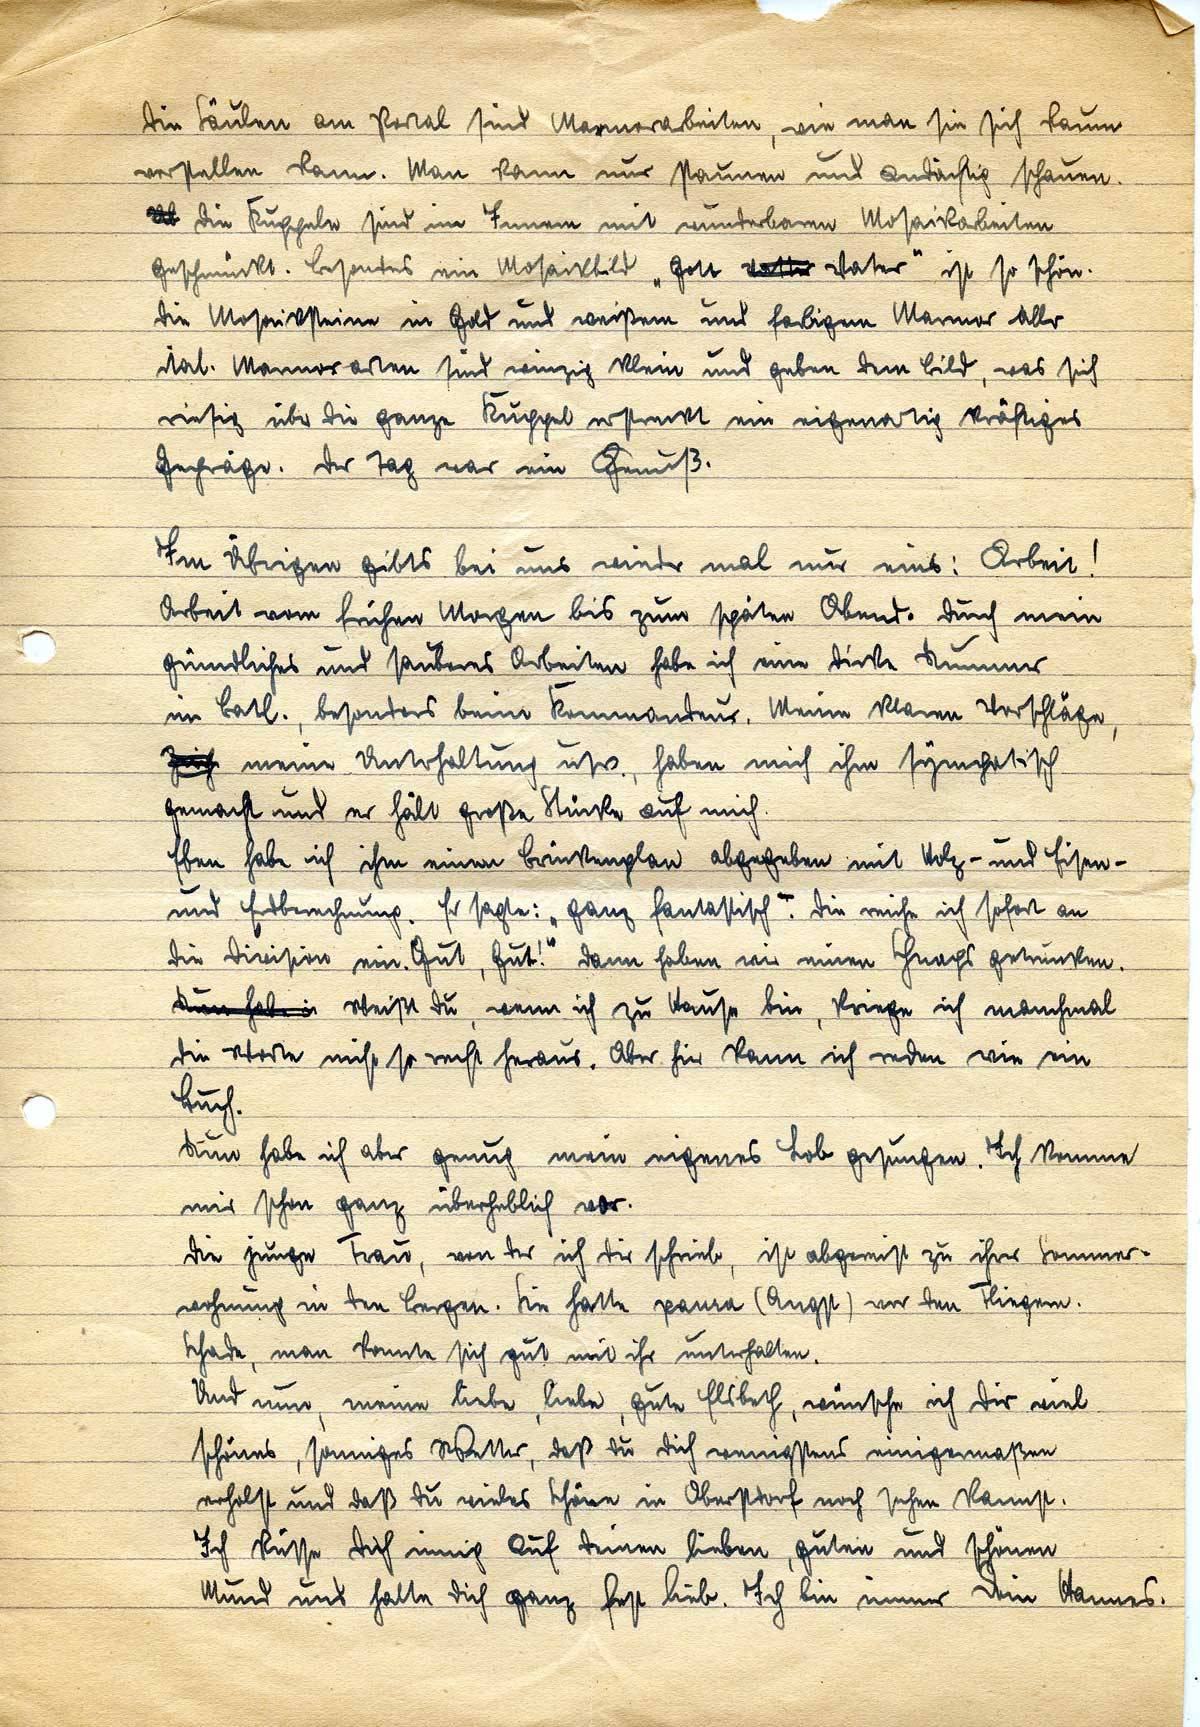 Die Säulen am Portal sind Marmorarbeiten, wie man sie sich kaum
vorstellen kann. Man kann nur staunen und andächtig schauen.
Die Kuppeln sind im Innern mit wunderbaren Mosaikarbeiten
geschmückt. Besondes ein Mosaikbild „Gott Vater" ist so schön.
Die Mosaiksteine in Gold und weißem und farbigem Marmor aller
ital. Marmorarten sind winzig klein und geben dem Bild, was sich
riesig über die ganze Kuppel erstreckt ein eigenartig kräftiges
Gepräge. Der Tag war ein Genuß.
Im Übrigen gibts bei uns wieder mal nur eins: Arbeit!
Arbeit vom frühen Morgen bis zum späten Abend. Durch mein
gründliches und sauberes Arbeiten habe ich eine dicke Nummer
im Batl., besonders beim Kommandeur. Meine klaren Vorschläge,
meine Unterhaltung usw., haben mich ihm sympatisch
gemacht und er hält große Stücke auf mich.
Eben habe ich ihm einen Brückenplan abgegeben mit Holz- und Eisen-
und Erdberechnung. Er sagte: „ganz fantastisch". Die reiche ich sofort an
die Division ein. Gut, Gut!" Dann haben wir einen Schnaps getrunken.
Weißt du, wenn ich zu Hause bin, kriege ich manchmal
die Worte nicht so recht heraus. Aber hier kann ich reden wie ein
Buch.
Nun habe ich aber genug mein eigenes Lob gesungen. Ich komme
mir schon ganz überheblich vor.
Die junge Frau, von der ich dir schrieb, ist abgereist zu ihrer Sommer-
wohnung in den Bergen. Sie hatte paura (Angst) vor den Fliegern.
Schade, man konnte sich gut mit ihr unterhalten.
Und nun, meine liebe, liebe, gute Elsbeth, wünsche ich Dir viel
schönes, sonniges Wetter, daß du dich wenigstens einigermaßen
erholst und daß du vieles Schöne in Oberstdorf noch sehen kannst.
Ich küsse Dich innig auf deinen lieben, guten und schönen
Mund und halte dich ganz fest lieb. Ich bin immer Dein Hannes.